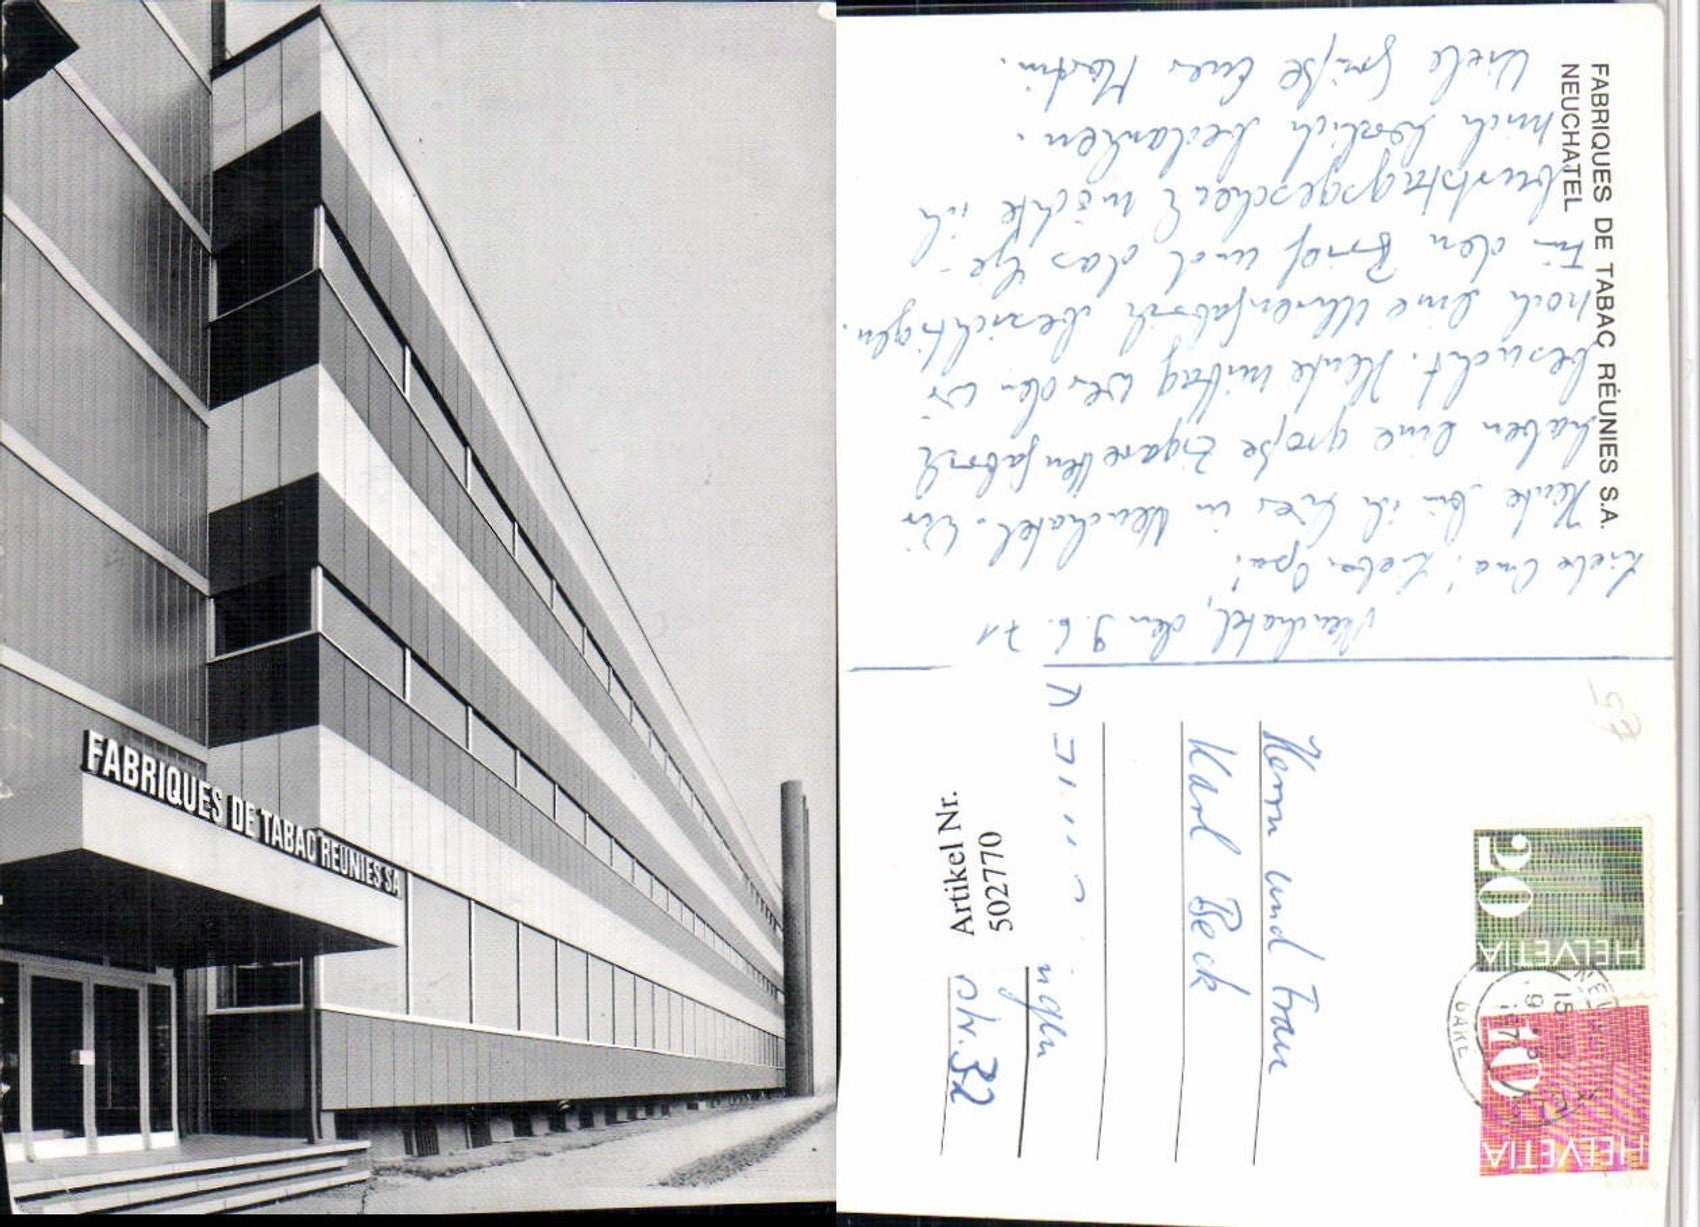 FABRIQUES DE TABAC REUNIES SA
FABRIQUES DE TABAC RÉUNIES S.A.
NEUCHATEL
Neuchatel, den 9.6.71
Liebe Oma! Lieber Opa!
Heute bin ich hier in Neuchatel. Wir
haben eine große Zigarettenfabrik
besucht. Heute mittag werden wir
noch eine Uhrenfabrik besichtigen.
Für den Brief und das Ge-
burtstagsgeschenk möchte ich
mich herzlich bedanken.
Viele Grüße Euer Martin.
Herrn und Frau
Karl Beck
str. 32
Artikel Nr.
502770
HELVETIA
50
HELVETIA
10